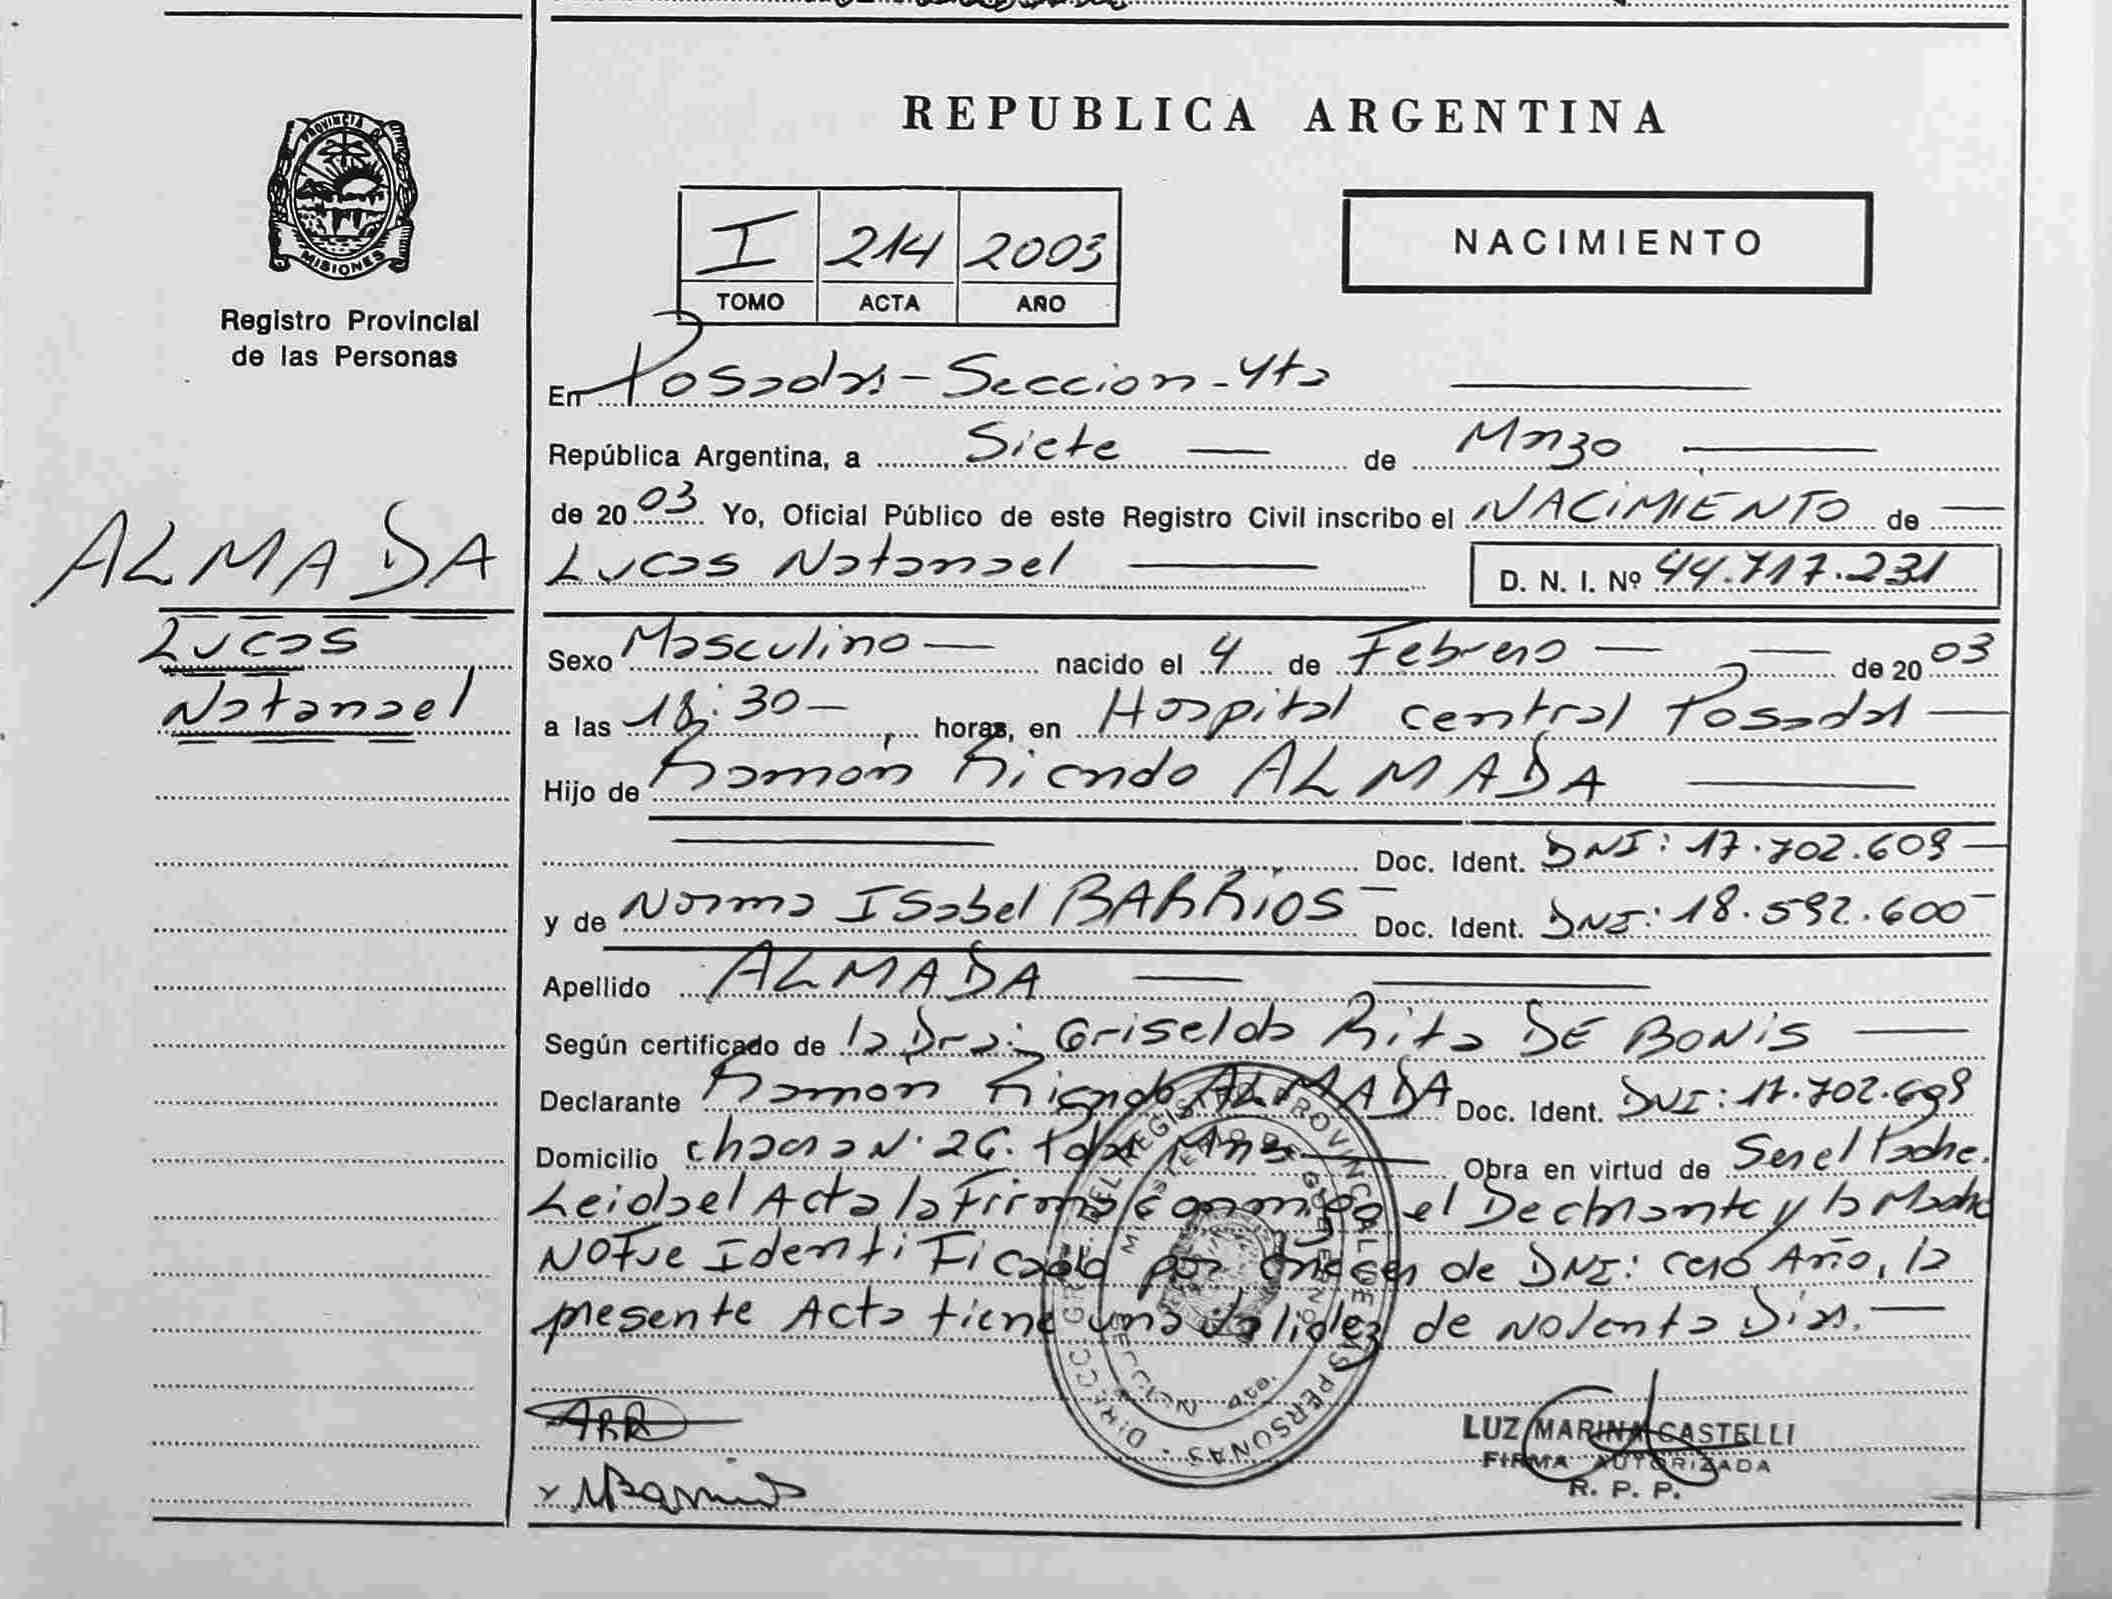 REPUBLICA ARGENTINA
PROVINCIA DE
MISIONES
Registro Provincial
de las Personas
I 214 2003
TOMO ACTA AÑO
NACIMIENTO
En Posadas - Seccion - 4ta
República Argentina, a Siete de Marzo
de 2003 Yo, Oficial Público de este Registro Civil inscribo el NACIMIENTO de
Lucas Natanael D. N. I. Nº 44.717.231
ALMADA
Lucas
Natanael
Sexo Masculino nacido el 4 de Febrero de 2003
a las 18:30 horas, en Hospital central Posadas
Hijo de Ramón Ricardo ALMADA
Doc. Ident. DNI: 17.702.609
y de Norma ISabel BARRiOS Doc. Ident. DNI: 18.592.600
Apellido ALMADA
Según certificado de la Dra: Griselda Rita DE BONiS
Declarante Ramon Ricardo ALMADA Doc. Ident. DNI: 17.702.609
Domicilio chacra N° 26. Pdas Mnes Obra en virtud de Ser el Padre.
Leida el Acta la Firma conmigo el Declarante y la Madre
NO Fue IdentiFicado por carecer de DNI: cero Año, la
presente Acta tiene una validez de noventa Dias.
DIRECC. GRAL. DEL REGISTRO PROVINCIAL DE LAS PERSONAS
MINISTERIO DE GOBIERNO
SECCION 4ta.
ARA
NBarrios
LUZ MARINA CASTELLI
FIRMA AUTORIZADA
R. P. P.